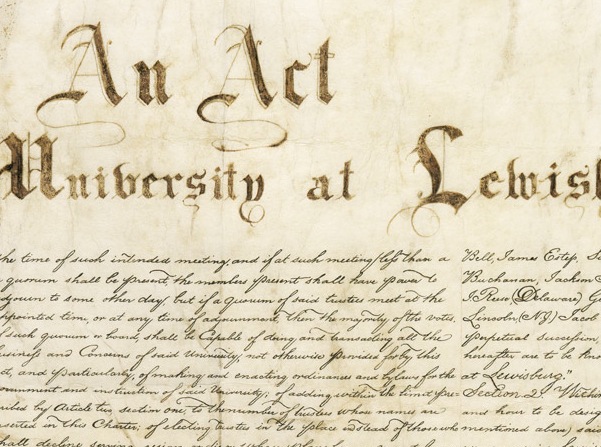 An Act
University at Lewisb
the time of such intended meeting, and if at such meeting less than a
quorum shall be present, the members present shall have power to
adjourn to some other day; but if a quorum of said trustees meet at the
appointed time, or at any time of adjournment, then the majority of the votes
of such quorum or board, shall be Capable of doing and transacting all the
business and Concerns of said University, not otherwise provided for by this
and, particularly, of making and enacting ordinances and by laws for the
government and instruction of said University; of adding within the limit pre-
cribed by Article two section one, to the number of trustees whose names are
inserted in this Charter; of electing trustees in the place instead of those who
shall decline serving
Bell, James Estep,
Buchanan, Jackson
(Delaware)
Lincoln, (NJ) Jacob
perpetual succession,
hereafter are to be
at Lewisburg."
Section 2. Within
and hour to be
mentioned above) said